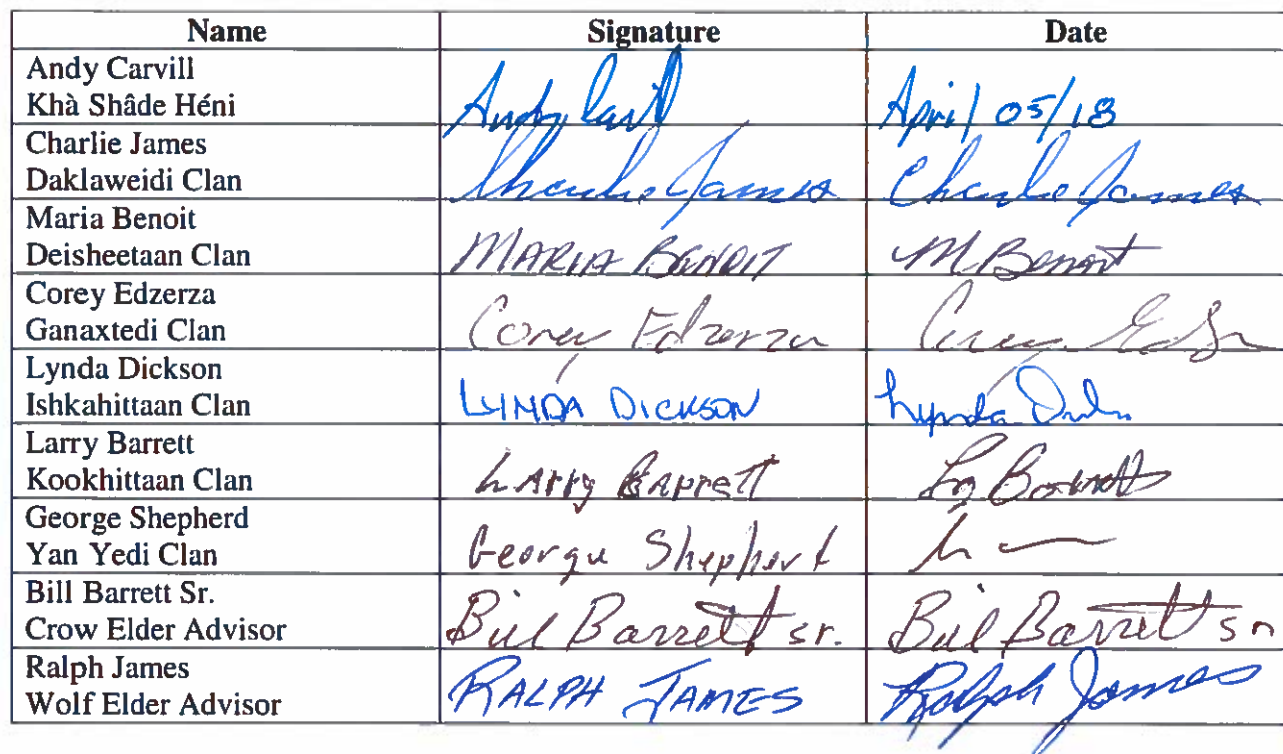 Name Signature Date
Andy Carvill
Khà Shâde Héni
Andy Carvill April 05/18
Charlie James
Daklaweidi Clan
Charlie James Charlie James
Maria Benoit
Deisheetaan Clan
MARIA BENOIT M Benoit
Corey Edzerza
Ganaxtedi Clan
Corey Edzerza
Lynda Dickson
Ishkahittaan Clan
LYNDA DICKSON Lynda
Larry Barrett
Kookhittaan Clan
LArry BArrett
George Shepherd
Yan Yedi Clan
George Shepherd
Bill Barrett Sr.
Crow Elder Advisor
Bill Barrett sr. Bill Barrett sr
Ralph James
Wolf Elder Advisor
RALPH JAMES Ralph James